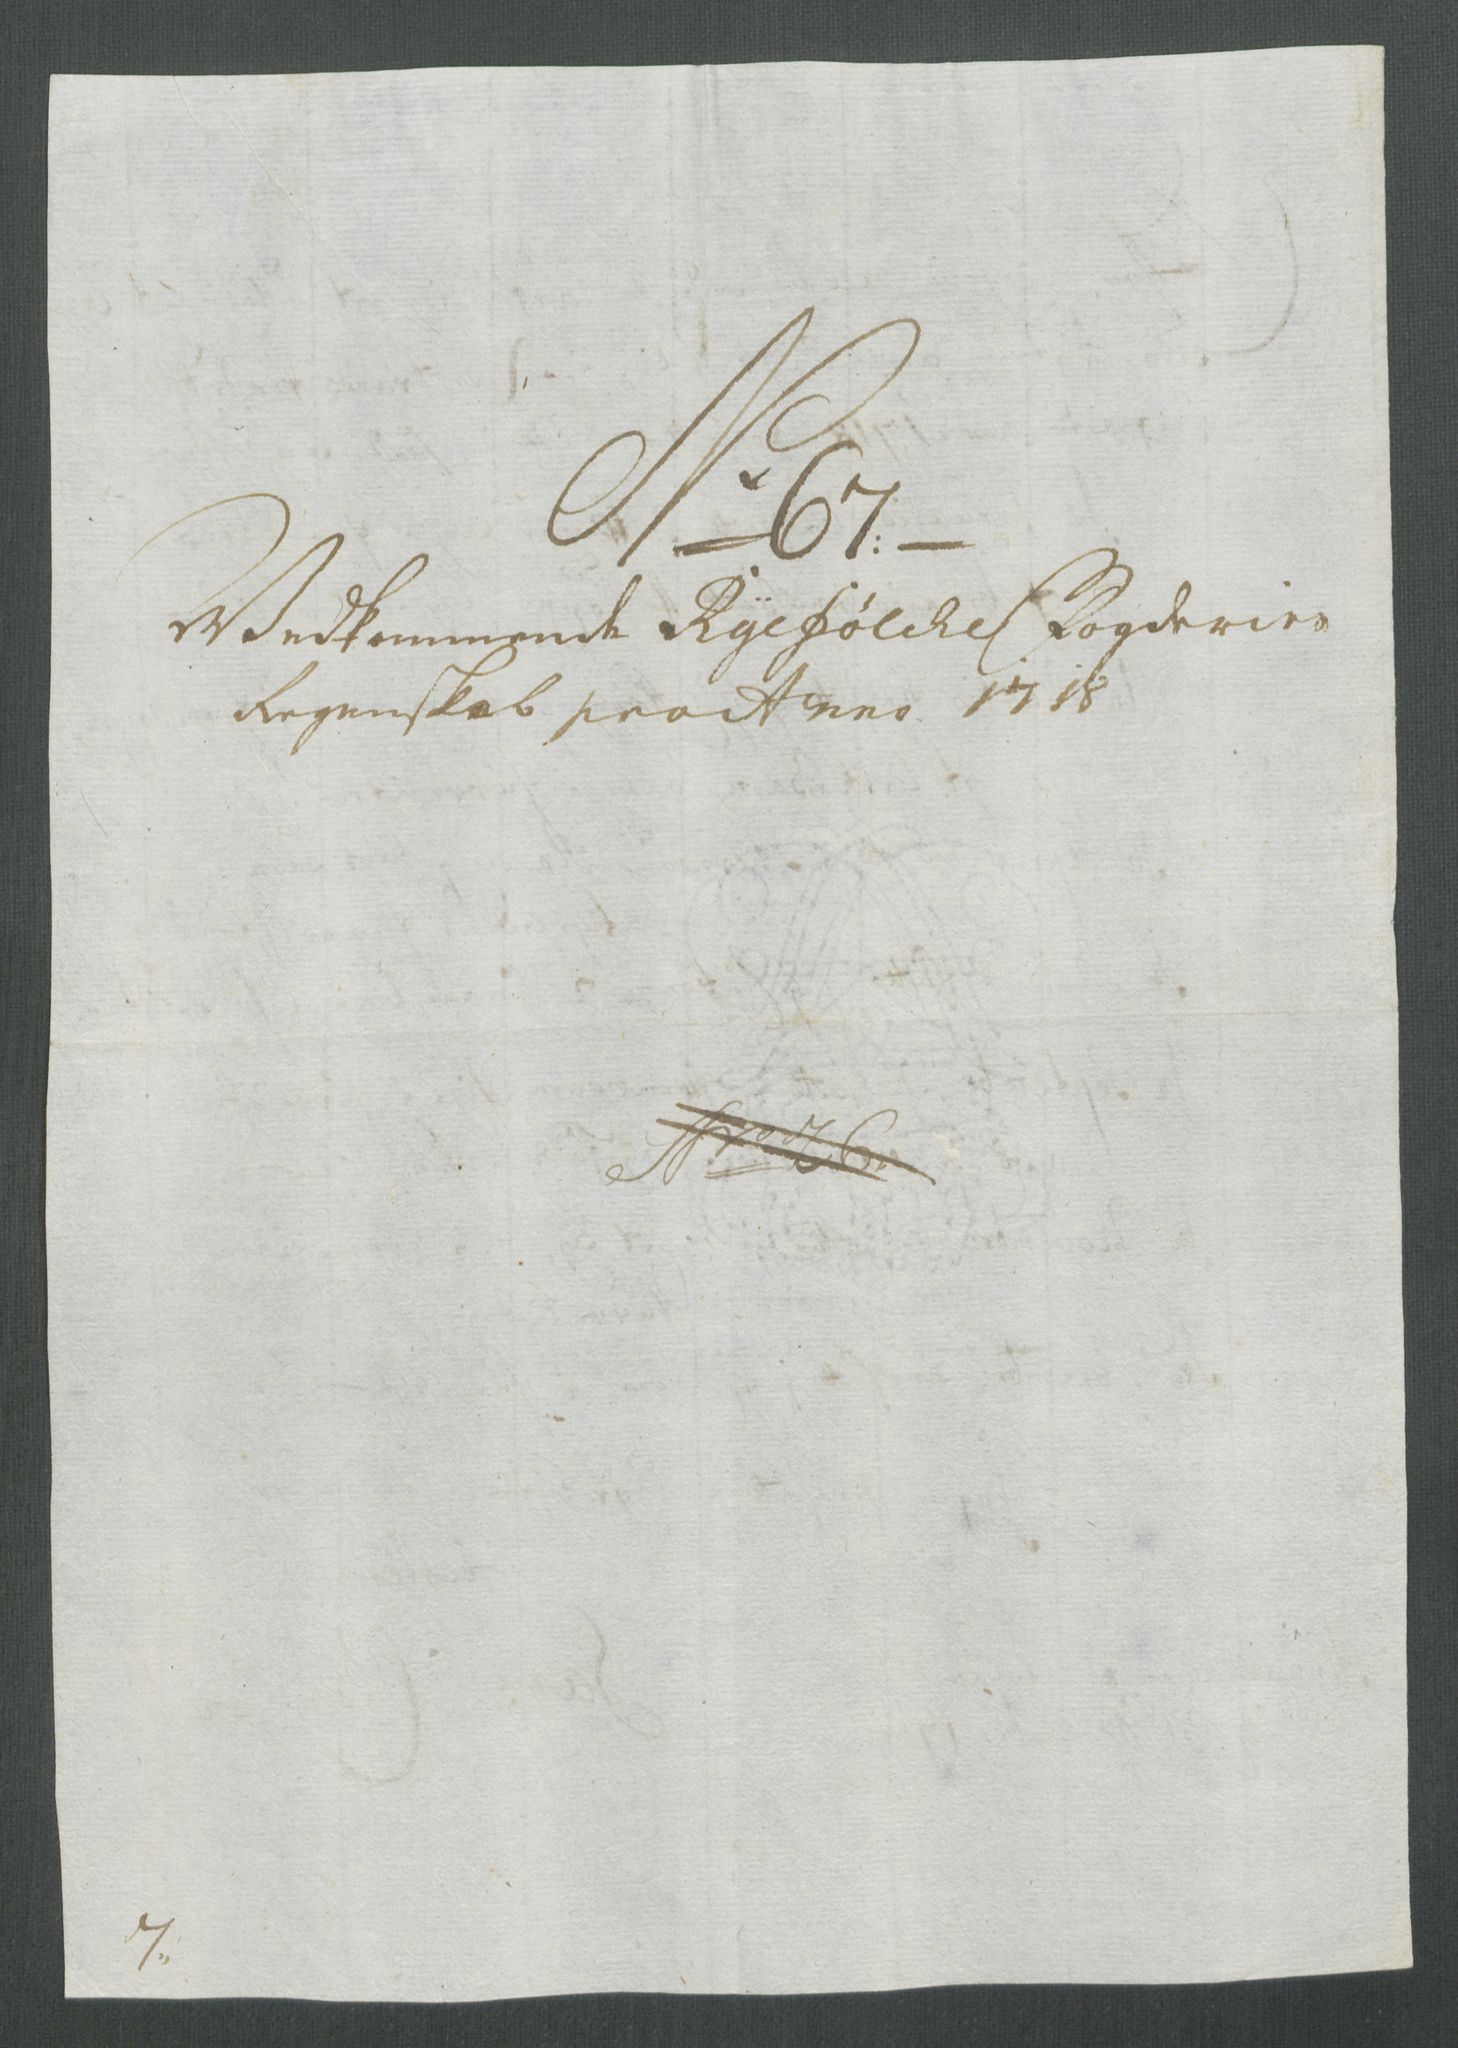 No 67:
Vedkommende Ryefölckes Fogderies
Regenskab pro Anno 1718
7.